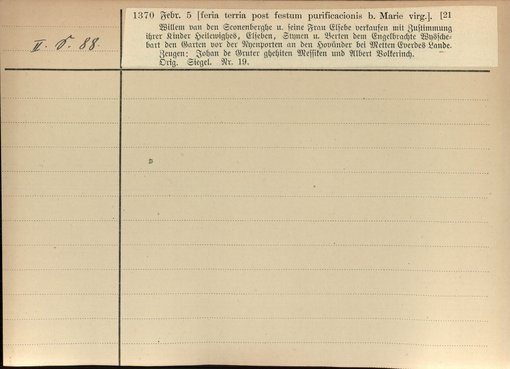 1370 Febr. 5 [feria terria post festum purificacionis b. Marie virg.]. [21
Willem van den Sconenberghe u. seine Frau Elsebe verkaufen mit Zustimmung
ihrer Kinder Heilewighes, Elseben, Stynen u. Berten dem Engelbrachte Wyssche-
bart den Garten vor der Nyenporten an den Hovünder bei Metten Everdes Lande.
Zeugen: Johan de Gruter ghehiten Messiken und Albert Volkerinch.
Orig. Siegel. Nr. 19.
II. S. 88.